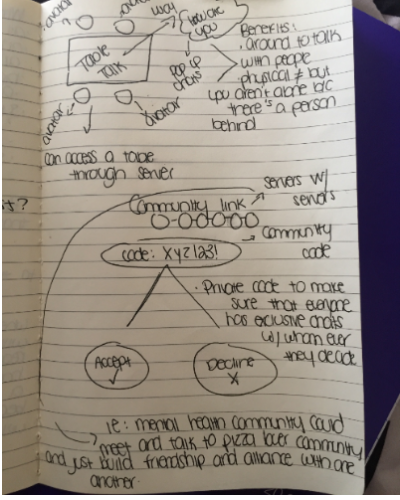 avatar
avatar
way
how are
you
Table
Talk
pop up
chats
avatar
avatar
Benefits:
. around to talk
with people
physical ≠ but
you aren't alone b/c
there's a person
behind
can access a table
through server
st?
Community link
servers w/
servers
code: Xyz123!
Community
code
. Private code to make
sure that everyone
has exclusive chats
w/ whom ever
they decide
Accept
✓
Decline
X
ie: mental health community could
meet and talk to pizza lover community
and just build friendship and alliance with one
another.